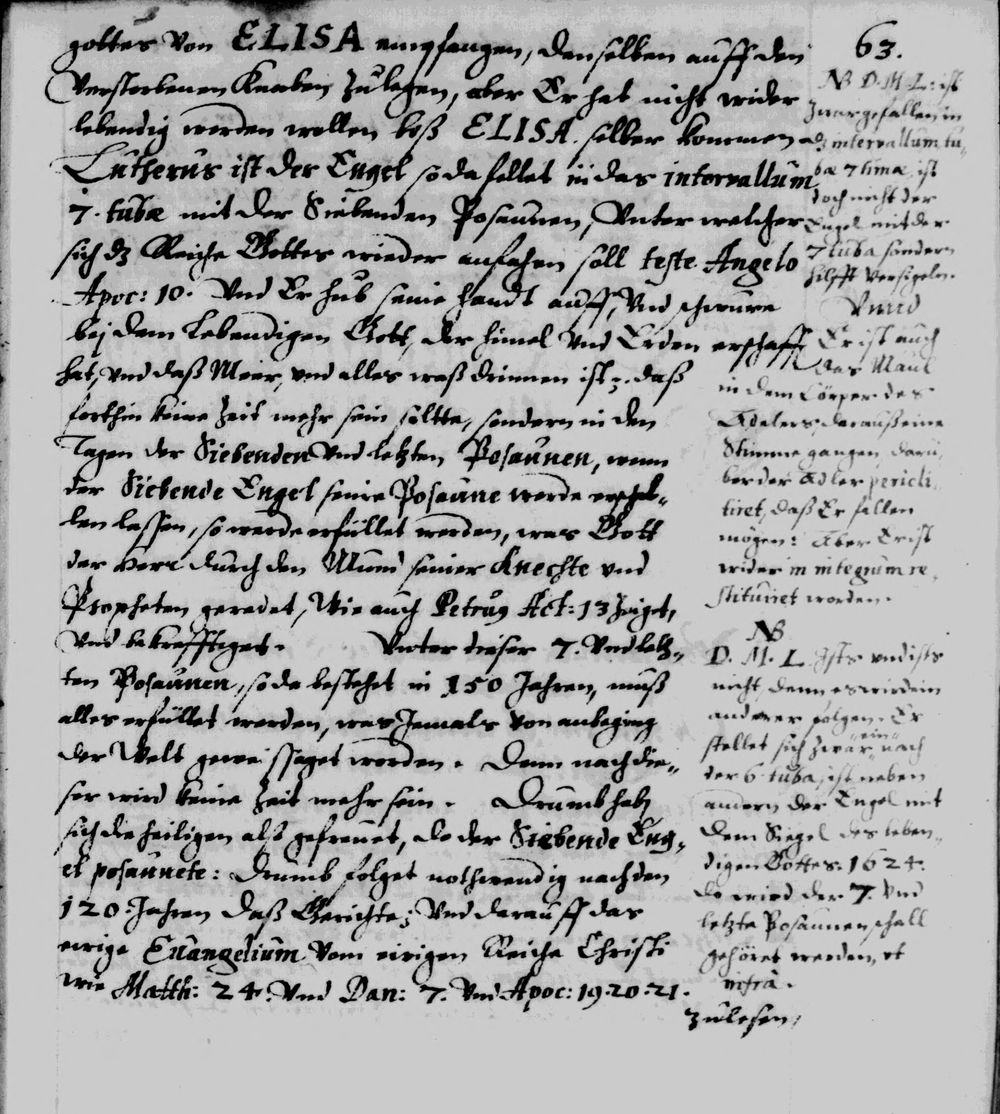 63.
gottes von ELISA empfangen, denselben auff den
verstorbenen Knaben zulegen, aber Er hat nicht wider
lebendig werden wollen biß ELISA selber kommen
Lutherus ist der Engel so da fellet in das intervallum
7. tubæ mit der Siebenden Posaunen, Unter welcher
sich dz Reiche Gottes wieder anfahen soll teste Angelo
Apoc: 10. Und Er hub seine handt auff, Und schwure
bej dem Lebendigen Gott, der himel Und Erden erschaffen
hat, und daß Meer, und alles waß drinnen ist, daß
forthin keine Zeit mehr sein soltte, sondern in den
Tagen der Siebenden Und letzten Posaunen, wenn
der Siebende Engel seine Posaune werde erschal-
len lassen, so werde erfüllet werden, was Gott
der Herr durch den Mund seiner Knechte und
Propheten geredet, Wie auch Petrus Act: 13 zeiget,
Und bekrefftiget. Unter dieser 7. Und letz-
ten Posaunen, so da bestehet in 150 Jahren, muß
alles erfüllet werden, was Jemals von anbeging
der Welt geweissaget worden. Denn nach die-
ser wird keine Zeit mehr sein. Drumb habn
sich die heiligen alß gefreuet, do der Siebende Eng-
el posaunete: Drumb folget nothwendig nach den
120. Jahren daß Gerichte, Und darauff das
ewige Euangelium vom ewigen Reiche Christi
wie Matth: 24. Und Dan: 7. Und Apoc: 19. 20. 21.
zulesen,
NB D. M. L. ist
zwar gefallen in
dz intervallum tu-
bæ 7timæ, ist
doch nicht der
Engel mit der
7 tuba sondern
hilfft versigelen.
Unnd
Er ist auch
das Maul
in dem Cörper des
Adelers, darauß eine
Stimme gangen, darü-
ber der Adler pericli-
tiret, daß Er fallen
mögen: Aber Er ist
wider in integrum re-
stituiret worden.
NB
D. M. L. Ists und ists
nicht, denn es wird ein
anderer folgen. Er
stellet sich zwar "ein" nach
der 6 tuba, ist neben
andern der Engel mit
dem Siegel des leben-
digen Gottes. 1624.
do wird der 7. Und
letzte Posaunen schall
gehöret werden, vt
infra.